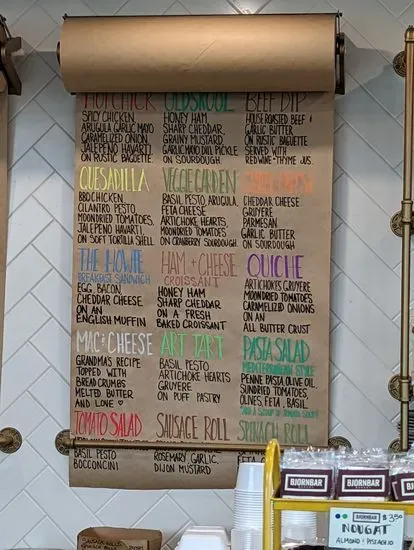 HOT CHICK
SPICY CHICKEN,
ARUGULA GARLIC MAYO
CARAMELIZED ONION
JALEPENO HAVARTI,
ON RUSTIC BAGUETTE
OLDSKOOL
HONEY HAM
SHARP CHEDDAR,
GRAINY MUSTARD,
GARLIC MAYO DILL PICKLE
ON SOURDOUGH.
BEEF DIP
HOUSE ROASTED BEEF &
GARLIC BUTTER
ON RUSTIC BAGUETTE
SERVED WITH
RED WINE-THYME JUS.
QUESADILLA
BBQ CHICKEN,
CILANTRO PESTO,
MOONDRIED TOMATOES,
JALAPENO HAVARTI,
ON SOFT TORTILLA SHELL
VEGGIE GARDEN
BASIL PESTO, ARUGULA,
FETA CHEESE
ARTICHOKE HEARTS
MOONDRIED TOMATOES
ON CRANBERRY SOURDOUGH.
CHEDDAR CHEESE
GRUYERE
PARMESAN
GARLIC BUTTER
ON SOURDOUGH
THE HOWIE
BREAKFAST SANDWICH
EGG, BACON,
CHEDDAR CHEESE
ON AN
ENGLISH MUFFIN
HAM + CHEESE
CROISSANT
HONEY HAM
SHARP CHEDDAR
ON A FRESH
BAKED CROISSANT
QUICHE
ARTICHOKES GRUYERE
MOONDRIED TOMATOES
CARAMELIZED ONIONS
ON AN
ALL BUTTER CRUST
MAC & CHEESE
GRANDMA'S RECIPE
TOPPED WITH
BREAD CRUMBS
MELTED BUTTER
AND LOVE ♡
ART TART
BASIL PESTO
ARTICHOKE HEARTS
GRUYERE
ON PUFF PASTRY
PASTA SALAD
MEDITERRANEAN STYLE
PENNE PASTA OLIVE OIL,
SUNDRIED TOMATOES,
OLIVES, FETA, BASIL.
TOMATO SALAD
BASIL PESTO
BOCCONCINI
SAUSAGE ROLL
ROSEMARY, GARLIC,
DIJON MUSTARD
SPINACH ROLL
FETA
BJORNBAR
BJORNBAR
BJORNBAR
$3.50
NOUGAT
ALMOND & PISTACHIO